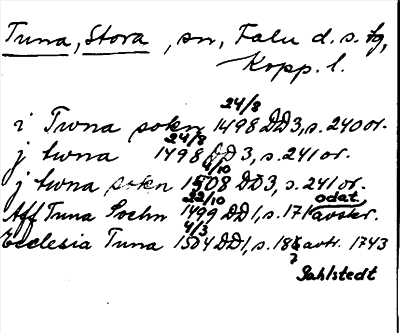 Tuna, Stora, sn, Falu d. s. fg,
Kopp. l.
24/8
i Twna sokn 1498 DD3, s. 240 or.
24/8
j twna 1498 DD3, s. 241 or.
4/10
j twna sokn 1508 DD3, s. 241 or.
22/10 odat.
Aff Tuna Sochn 1499 DD1, s. 171 avskr.
4/3
Ecclesia Tuna 1504 DD1, s. avtr. 1743
Sahlstedt